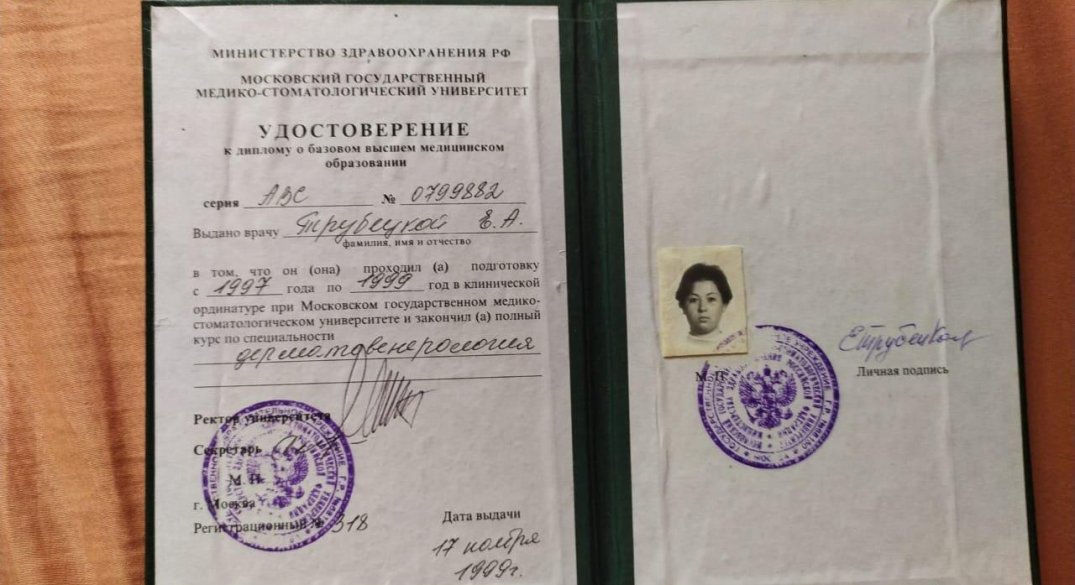 МИНИСТЕРСТВО ЗДРАВООХРАНЕНИЯ РФ
МОСКОВСКИЙ ГОСУДАРСТВЕННЫЙ
МЕДИКО-СТОМАТОЛОГИЧЕСКИЙ УНИВЕРСИТЕТ
УДОСТОВЕРЕНИЕ
к диплому о базовом высшем медицинском
образовании
серия АВС № 0799882
Выдано врачу Трубецкой Е.А.
фамилия, имя и отчество
в том, что он (она) проходил (а) подготовку
с 1997 года по 1999 год в клинической
ординатуре при Московском государственном медико-
стоматологическом университете и закончил (а) полный
курс по специальности
дерматовенерология
Ректор университета
Секретарь
М.П.
г. Москва
Регистрационный № 318
Дата выдачи
17 ноября
1999г.
М.П.
Личная подпись